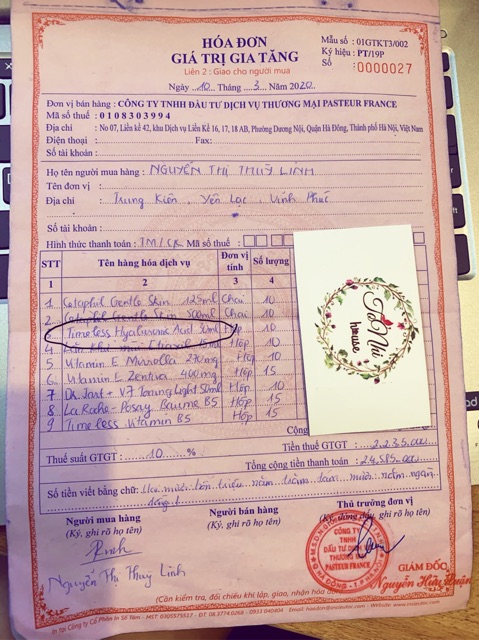 HÓA ĐƠN
GIÁ TRỊ GIA TĂNG
Liên 2 : Giao cho người mua
Ngày 10 Tháng 3 Năm 2020
Mẫu số : 01GTKT3/002
Ký hiệu : PT/19P
Số : 0000027
Đơn vị bán hàng : CÔNG TY TNHH ĐẦU TƯ DỊCH VỤ THƯƠNG MẠI PASTEUR FRANCE
Mã số thuế : 0108303994
Địa chỉ : No 07, Liền kề 42, khu Dịch vụ Liền Kề 16, 17, 18 AB, Phường Dương Nội, Quận Hà Đông, Thành phố Hà Nội, Việt Nam
Điện thoại : Fax:
Số tài khoản:
Họ tên người mua hàng : NGUYỄN THỊ THUỲ LINH
Tên đơn vị :
Địa chỉ : Trung Kiên, Yên Lạc, Vĩnh Phúc
Số tài khoản:
Hình thức thanh toán : TM/CK Mã số thuế :
STT Tên hàng hóa dịch vụ Đơn vị tính Số lượng
1 2 3 4
1 Cetaphil Gentle Skin 125ml Chai 10
2 Cetaphil Gentle Skin 500ml Chai 10
3 Timeless Hyaluronic Acid 30ml Hộp 10
4 Lăn khử mùi Etiaxil 15ml Hộp 10
5 Vitamin E Mirrolla 270mg Hộp 15
6 Vitamin E Zentiva 400mg Hộp 15
7 Dr. Jart + V7 Toning Light 50ml Hộp 10
8 La Roche - Posay Baume B5 Hộp 15
9 Timeless Vitamin B5 Hộp 15
house
Cộng
Thuế suất GTGT : 10 % Tiền thuế GTGT : 2.235.000
Tổng cộng tiền thanh toán : 24.585.000
Số tiền viết bằng chữ: Hai mươi bốn triệu năm trăm tám mươi năm ngàn
đồng
Người mua hàng
(Ký, ghi rõ họ tên)
Người bán hàng
(Ký, ghi rõ họ tên)
Thủ trưởng đơn vị
Linh
Nguyễn Thị Thuỳ Linh
CÔNG TY
TNHH
ĐẦU TƯ DỊCH VỤ
THƯƠNG MẠI
PASTEUR FRANCE
GIÁM ĐỐC
Nguyễn Hữu Quân
(Cần kiểm tra, đối chiếu khi lập, giao, nhận hóa đơn)